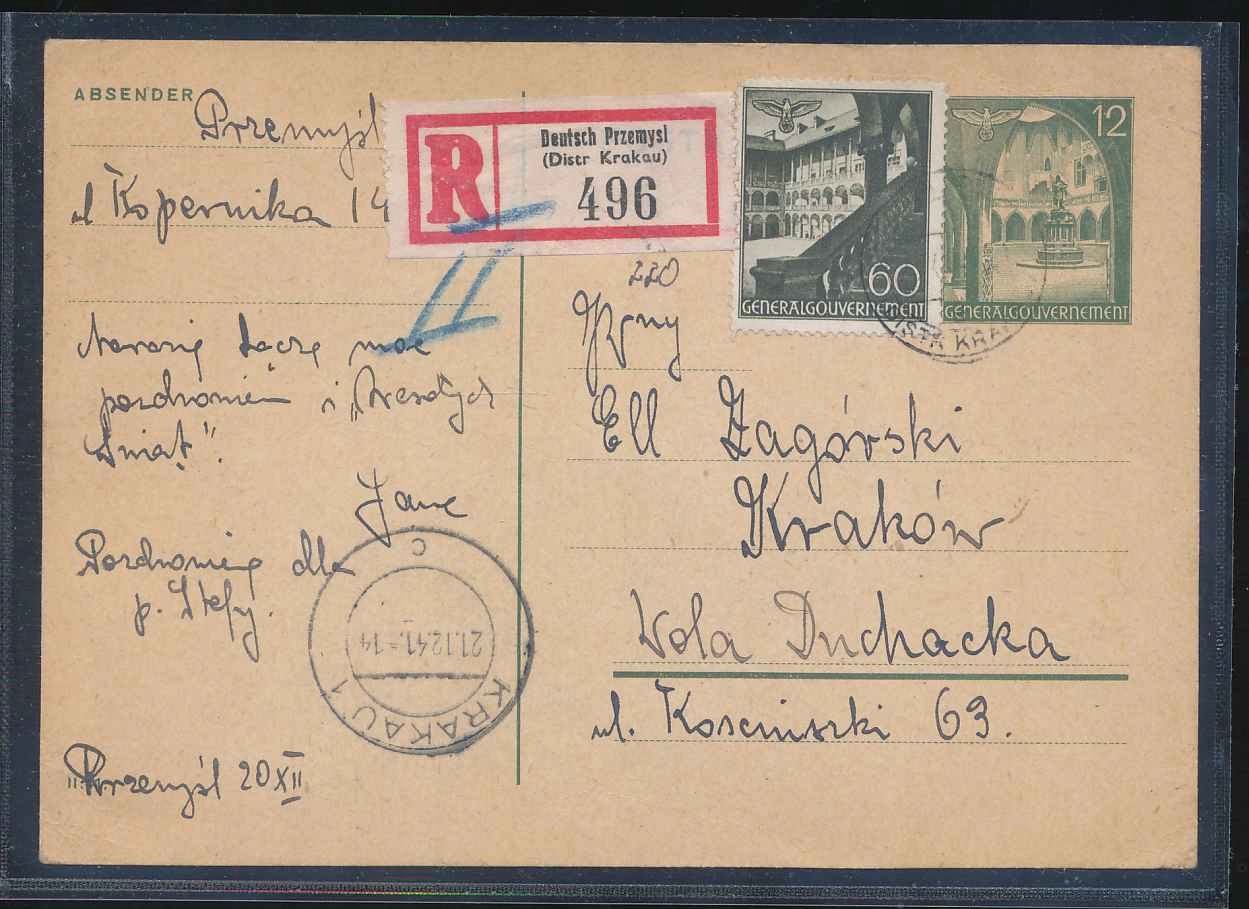 ABSENDER
Przemyśl
ul Kopernika 14
R
Deutsch Przemysl
(Distr Krakau)
496
60
GENERALGOUVERNEMENT
12
GENERALGOUVERNEMENT
220
JWny
Ell Zagórski
Kraków
Wola Duchacka
ul. Kosciuszki 63.
Narazie łączę moc
pozdrowień i „Wesołych
Świąt".
Pozdrowienia dla
p. Stefy.
Przemyśl 20 XII
KRAKAU 1
21.12.41.-14
c